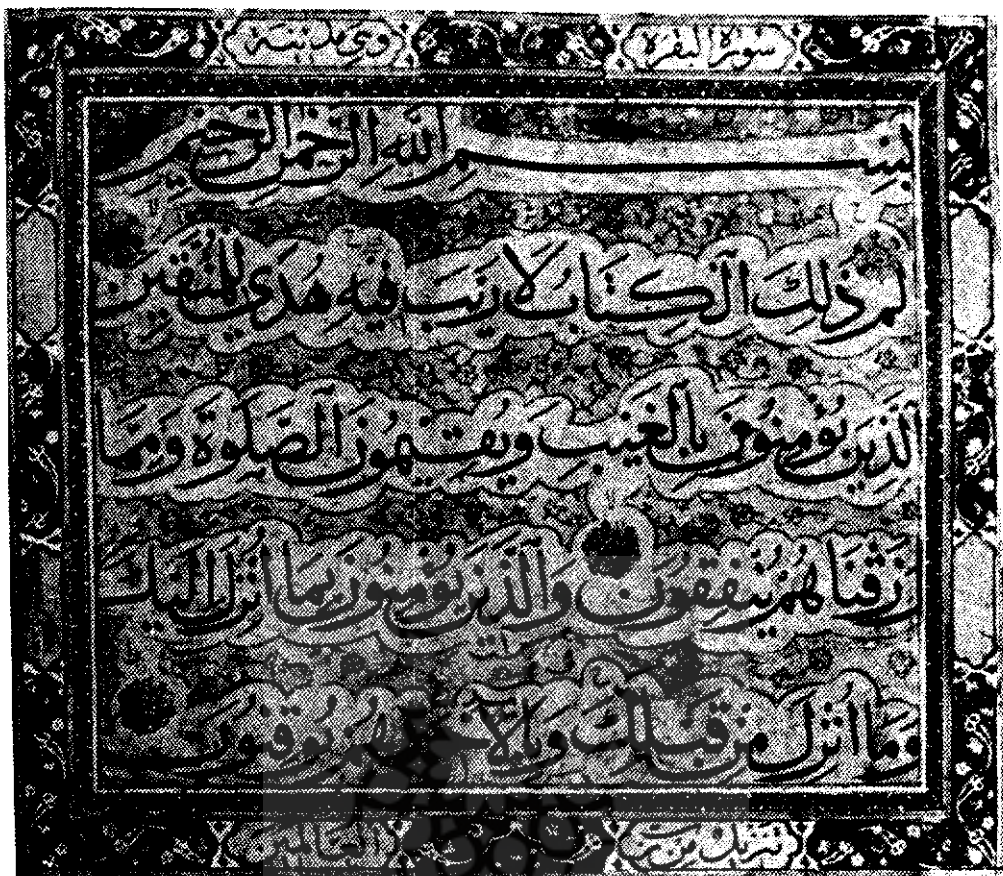 سورة البقرة وهي مدنية
بِسْمِ اللهِ الرَّحْمٰنِ الرَّحِيمِ
الم ذَلِكَ الْكِتَابُ لَا رَيْبَ فِيهِ هُدًى لِلْمُتَّقِينَ
الَّذِينَ يُؤْمِنُونَ بِالْغَيْبِ وَيُقِيمُونَ الصَّلَوٰةَ وَمِمَّا
رَزَقْنَاهُمْ يُنْفِقُونَ وَالَّذِينَ يُؤْمِنُونَ بِمَا أُنْزِلَ إِلَيْكَ
وَمَا أُنْزِلَ مِنْ قَبْلِكَ وَبِالْآخِرَةِ هُمْ يُوقِنُونَ
تنزيل من رب العالمين